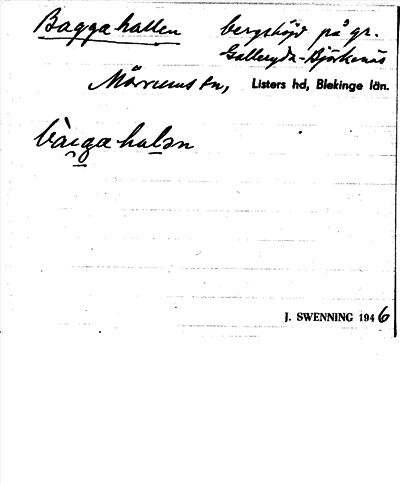 Baggahallen bergshöjd på gr.
Galleryda-Björkenäs
Mörrums sn, Listers hd, Blekinge län.
bàgahalən
J. SWENNING 1946